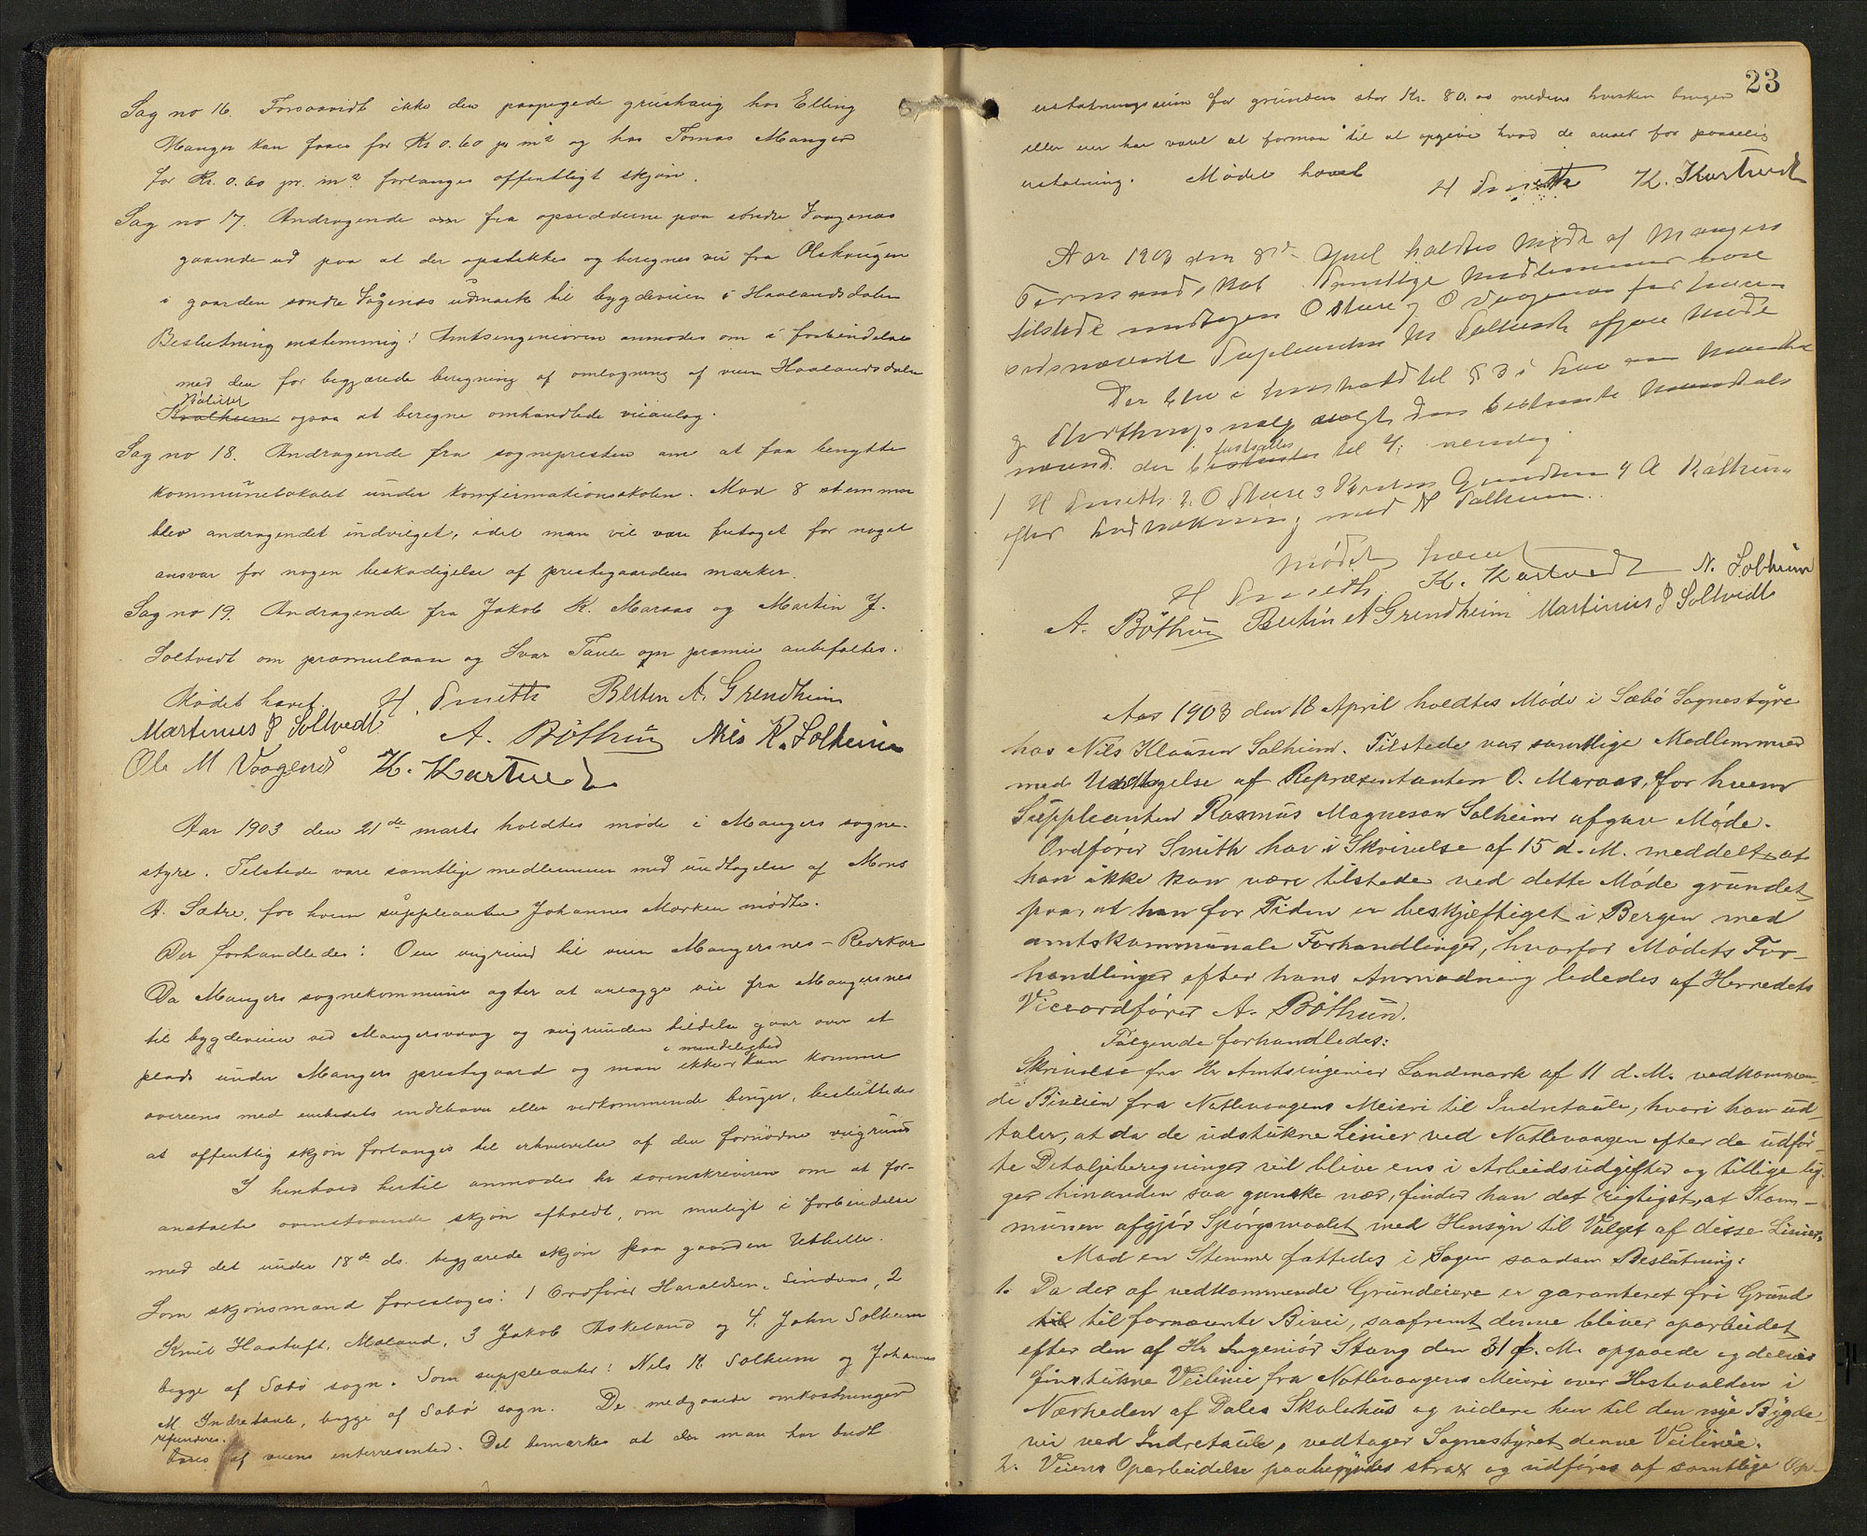 Sag no 16. Forsaavidt ikke den paapegede grushaug hos Elling
Manger kan faaes for Kr 0.60 pr m² og hos Tomas Manger
for Kr. 0.60 pr. m² forlanges offentligt skjøn.
Sag no 17. Andragende om fra opsidderne paa søndre Vaagenæs
gaaende ud paa at der opstikkes og beregnes vei fra Olskaugen
i gaarden søndre Vågenæs udmark til bygdeveien i Haalandsdalen
Beslutning enstemmig: Amtsingeniøren anmodes om i forbindelse
med den før begjærede beregning af omlægning af veien Haalandsdalen
Kvalheim ogsaa at beregne omhandlede veianlæg.
Sag no 18. Andragende fra sognepresten om at faa benytte
kommunelokalet under konfirmationsskolen. Mod 8 stemmer
blev andragendet indvilget, idet man vil være fritaget for noget
ansvar for nogen beskadigelse af prestegaardens marker.
Sag no 19. Andragende fra Jakob K. Maraas og Martin J.
Soltvedt om præmielaan og Ivar Taule om præmie anbefaltes.
Mødet hævet. H. Smith Bertin A. Grendheim
Martinus J Soltvedt A. Böthun Nils K. Solheim
Ole M Vaagenæs K. Kartvedt
Aar 1903 den 21de marts holdtes møde i Mangers sogne-
styre. Tilstede vare samtlige medlemmer med undtagelse af Mons
A. Sætre, for hvem suppleanten Johannes Marken mødte.
Der forhandledes: Om veigrund til veien Mangersnes-Rervkar
Da Mangers sognekommune agter at anlægge vei fra Mangersnes
til bygdeveien ved Mangersvaag og veigrunden tildels gaar over et
plads under Mangers prestegaard og man ikke i mindelighed kan komme
overens med embedets indehaver eller vedkommende bruger, besluttedes
at offentlig skjøn forlanges til erhvervelse af den fornødne veigrund
I henhold hertil anmodes hr sorenskriveren om at for-
anstalte ovenstaaende skjøn afholdt, om muligt i forbindelse
med det under 18de ds. begjærede skjøn paa gaarden
Som skjønsmænd foreslages: 1 Ordfører Haraldsen, Lindaas, 2
Knut Hastuft, Mæland, 3 Jakob Askeland og 4. John Solheim
begge af Sæbø sogn. Som suppleanter: Nils K. Solheim og Johannes
M. Indretaule, begge af Sæbø sogn. De medgaaede omkostninger
refunderes af veiens interressenter. Det bemærkes at der man har budt
23
erstatningssum for grunden stor Kr. 80.00 medens hverken bruger
eller eier har været at formaa til at opgive hvad de anser for passelig
erstatning. Mødet hævet H Smith K. Kartvedt
Aar 1903 den 8de April holdtes Møde af Mangers
Formandskab Samtlige Medlemmer vare
tilstede undtagen O Sture og O Vaagenæs for hvem
sidstnævnte Supleanten N. Solheim afgav Møde
Der blev i henhold til § 3 i Lov om
og Storthingsvalg valgt den bestemte
nævnd. der fastsattes til 4, nemlig
1 H Smith 2. O Sture 3 Bertin Grendheim 4 A Bøthun
efter Lodtrækning med N Solheim.
Mødet hævet
H Smith K. Kartvedt N. Solheim
A. Böthun Bertin A Grendheim Martinus J Soltvedt
Aar 1903 den 18 April holdtes Møde i Sæbö Sognestyre
hos Nils Klausen Solheim. Tilstede var samtlige Medlemmer
med Undtagelse af Repræsentanten O. Maraas, for hvem
Suppleanten Rasmus Magnesen Solheim afgav Møde.
Ordfører Smith har i Skrivelse af 15 d. M. meddelt, at
han ikke kan være tilstede ved dette Møde grundet
paa, at han for Tiden er beskjæftiget i Bergen med
amtskommunale Forhandlinger, hvorfor Mødets For-
handlinger efter hans Anmodning lededes af Herredets
Viceordfører A. Bøthun.
Følgende forhandledes:
Skrivelse fra Hr Amtsingeniør Landmark af 11 d. M. vedkommen-
de Biveien fra Natlevaagens Meieri til Indretaule, hvori han ud-
taler, at da de udstukne Linier ved Natlevaagen efter de udfør-
te Detaljberegninger vil blive ens i Arbeidsudgifter og tillige lig-
ger hinanden saa ganske nær, finder han det rigtigst, at Kom-
munen afgjør Spörgsmaalet med Hensyn til Valget af disse Linier.
Mod en Stemme fattedes i Sagen saadan Beslutning:
1. Da der af vedkommende Grundeiere er garanteret fri Grund
til til fornævnte Bivei, saafremt denne bliver oparbeidet
efter den af Hr Ingeniør Stang den 31 f. M. opgaaede og delvis
finstukne Veilinie fra Natlevaagens Meieri over Hestevolden i
Nærheden af Dales Skolehus og videre hen til den nye Bygde-
vei ved Indretaule, vedtager Sognestyret denne Veilinie.
2. Veiens Oparbeidelse paabegyndes strax og udføres af samtlige Op-